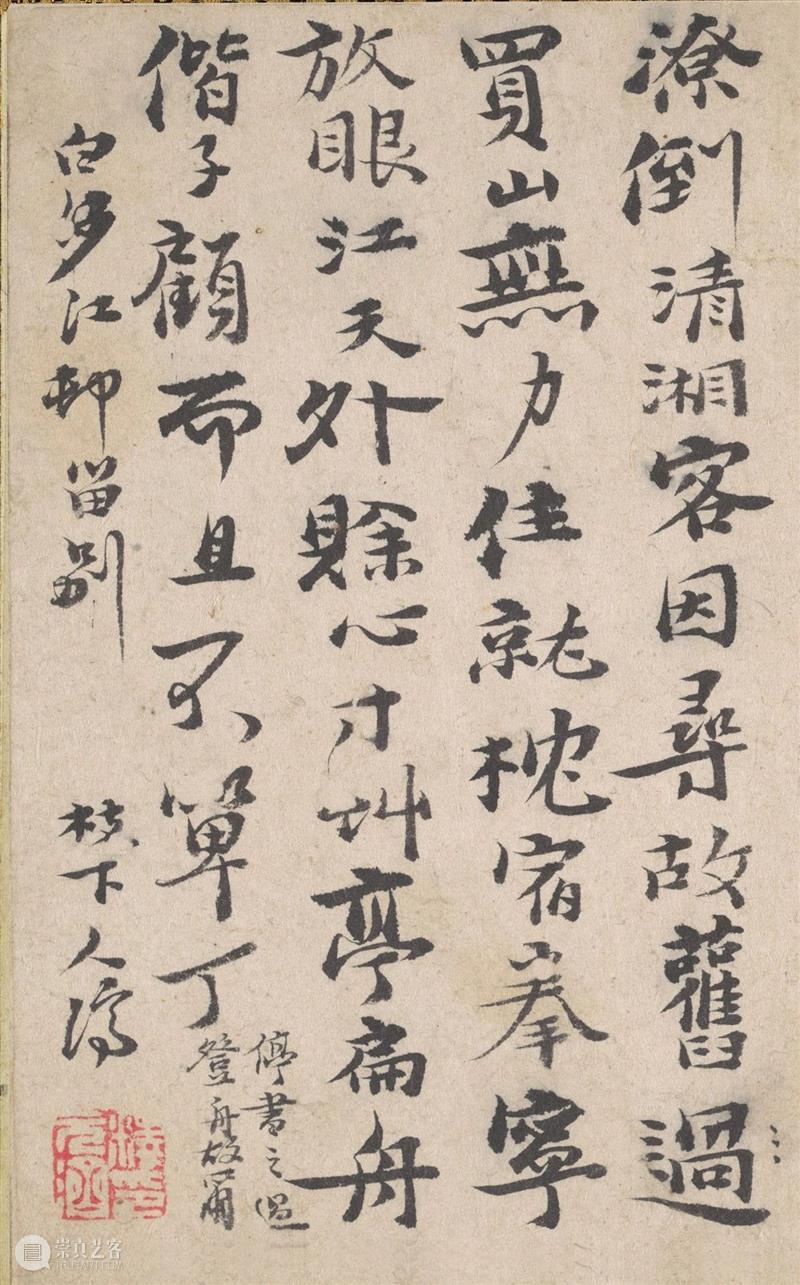 潦倒清湘客因尋故舊過
買山無力住就枕宿拳寧
放眼江天外賒心寸艸亭扁舟
偕子顧而且不單丁
停書之過
登舟故爾
白沙江邨留別
枝下人濟
崇真艺客